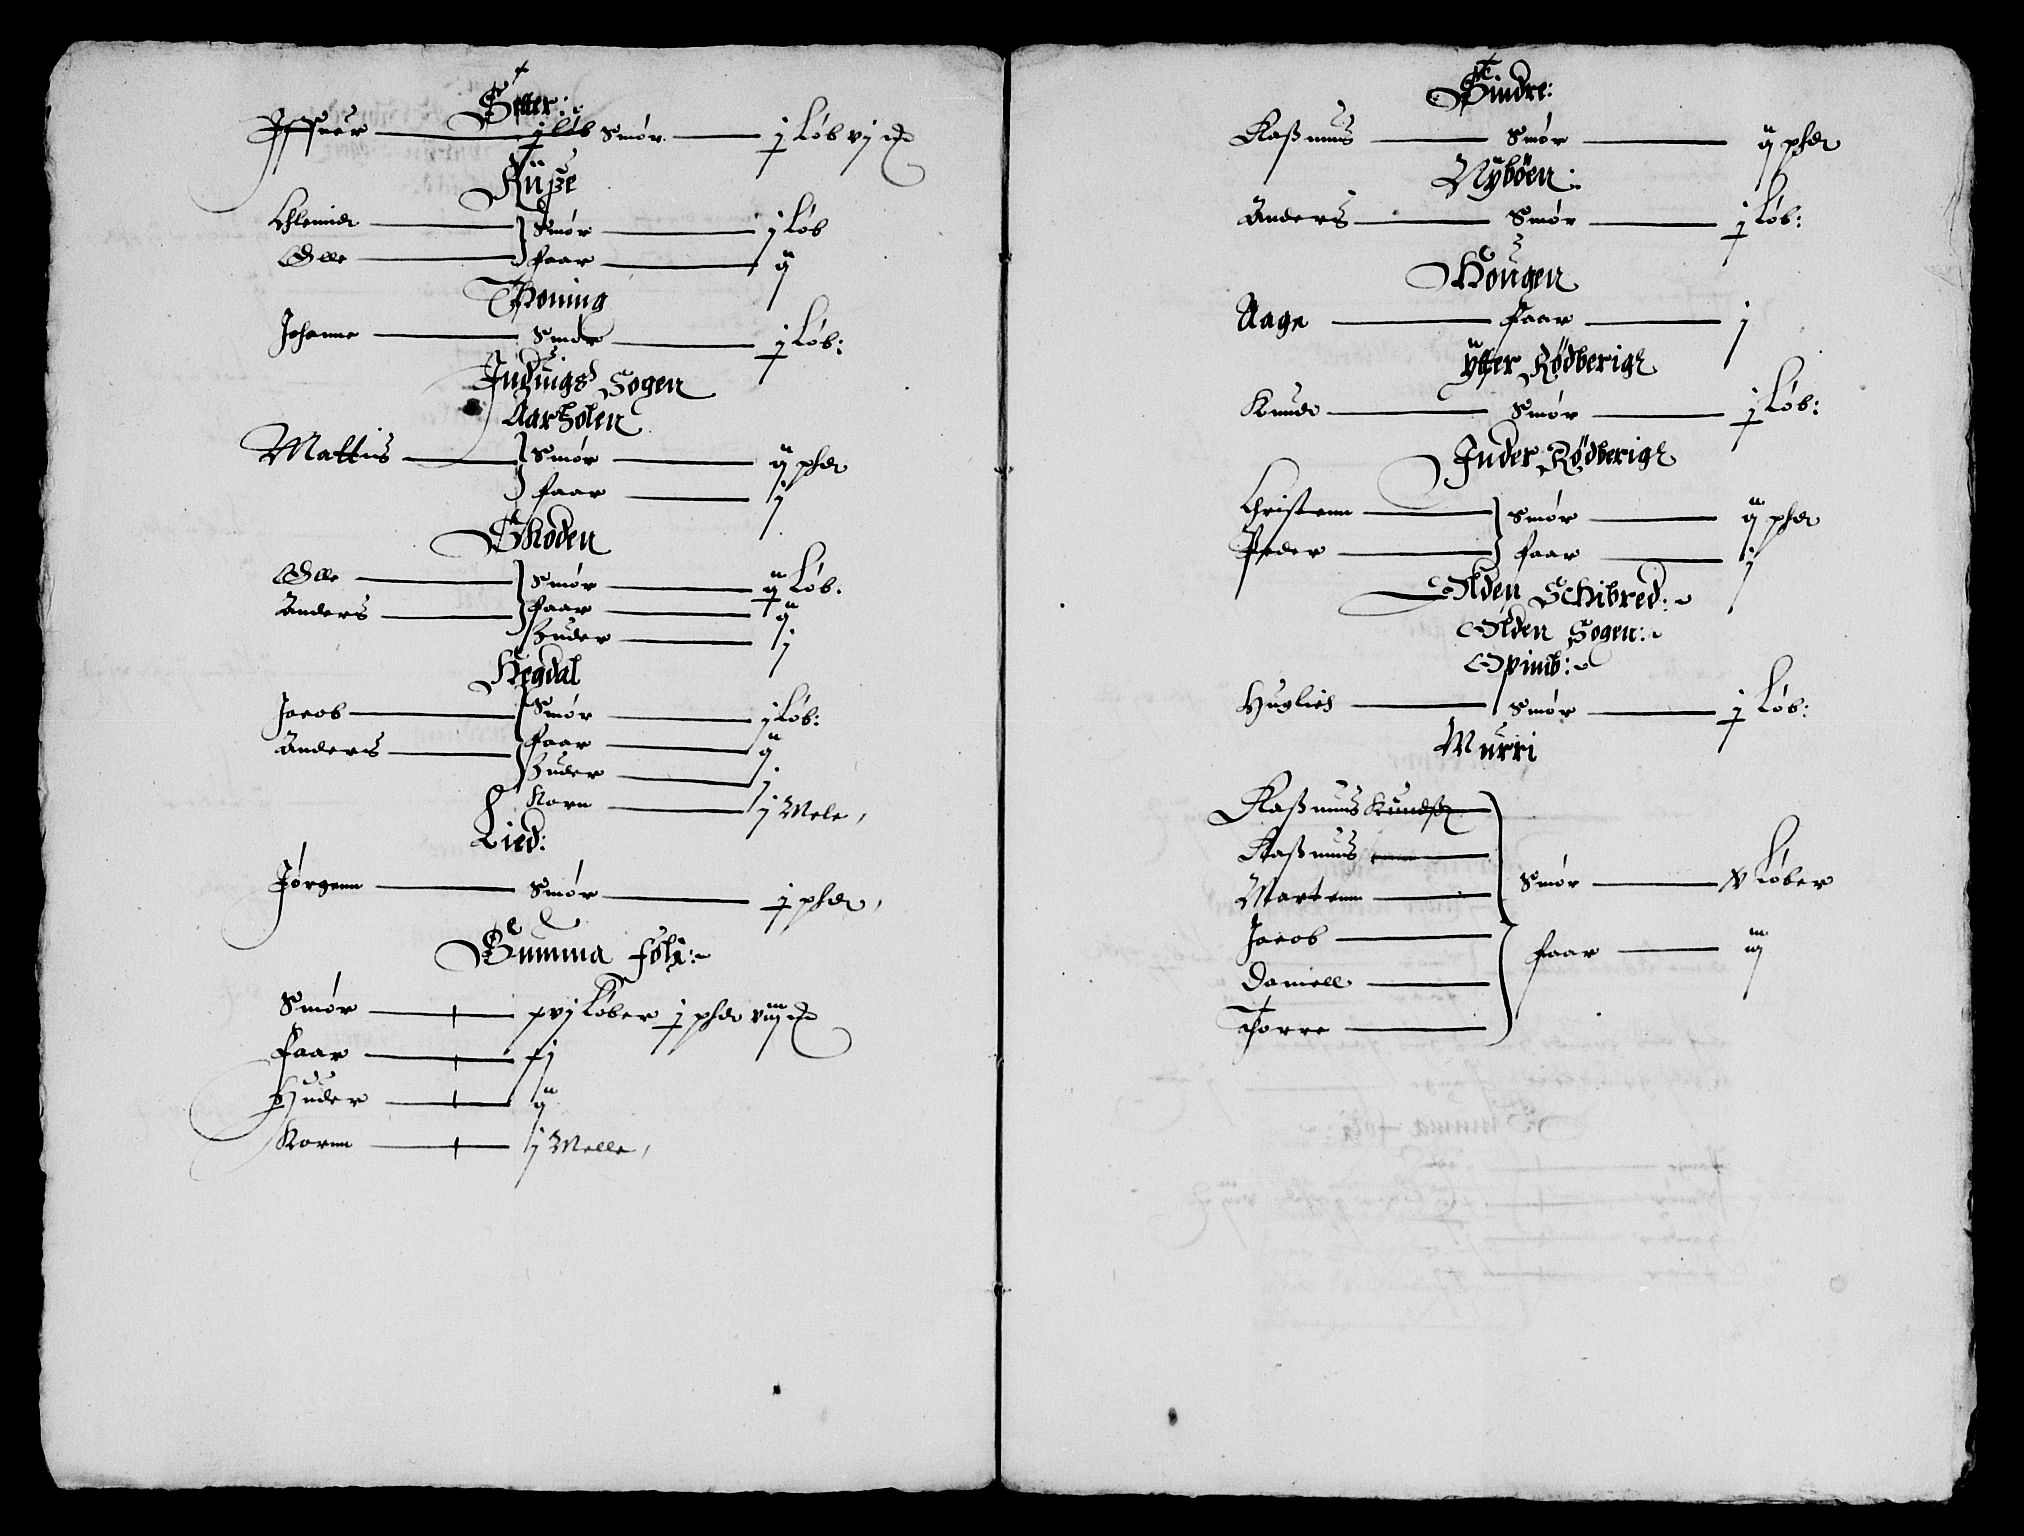 Setter:
Iffuer — j løb Smør — j Løb vj
Ruße
Chlemid — Smør — j Løb
Olle — faar — ij
Thoning
Johanne — Smør — j Løb:
Induigs Sogen
Aarholen
Mattis — Smør — ij phd
faar — j
Skoden
Olle — Smør — ij Løb:
Anders — faar — ij
Huder — j
Hegdal
Jacob — Smør — j Løb:
Anders — faar — ij
Huder — j
Korn — j Mele,
Lied:
Jørgenn — Smør — j phd,
Summa folj:
Smør — xvj Løber j phd viij
Faar — xj
Huder — ij
Kornn — j Melle,
Sindre:
Raßmus — Smør — ij phd
Nybøen:
Anders — Smør — j Løb:
Hougen
Aage — faar — j
ytter Rødberig
Knud — Smør — j Løb:
Inder Rødberig
Christenn — Smør — ij phd
Peder — faar — j
Olden Schibred:
Olden Sogen:
Opimb:
Huglied — Smør — j Løb:
Murri
Raßmus Knudß
Raßmus
Martenn — Smør — v Løber
Jacob — faar — iij
Daniell
Thorre